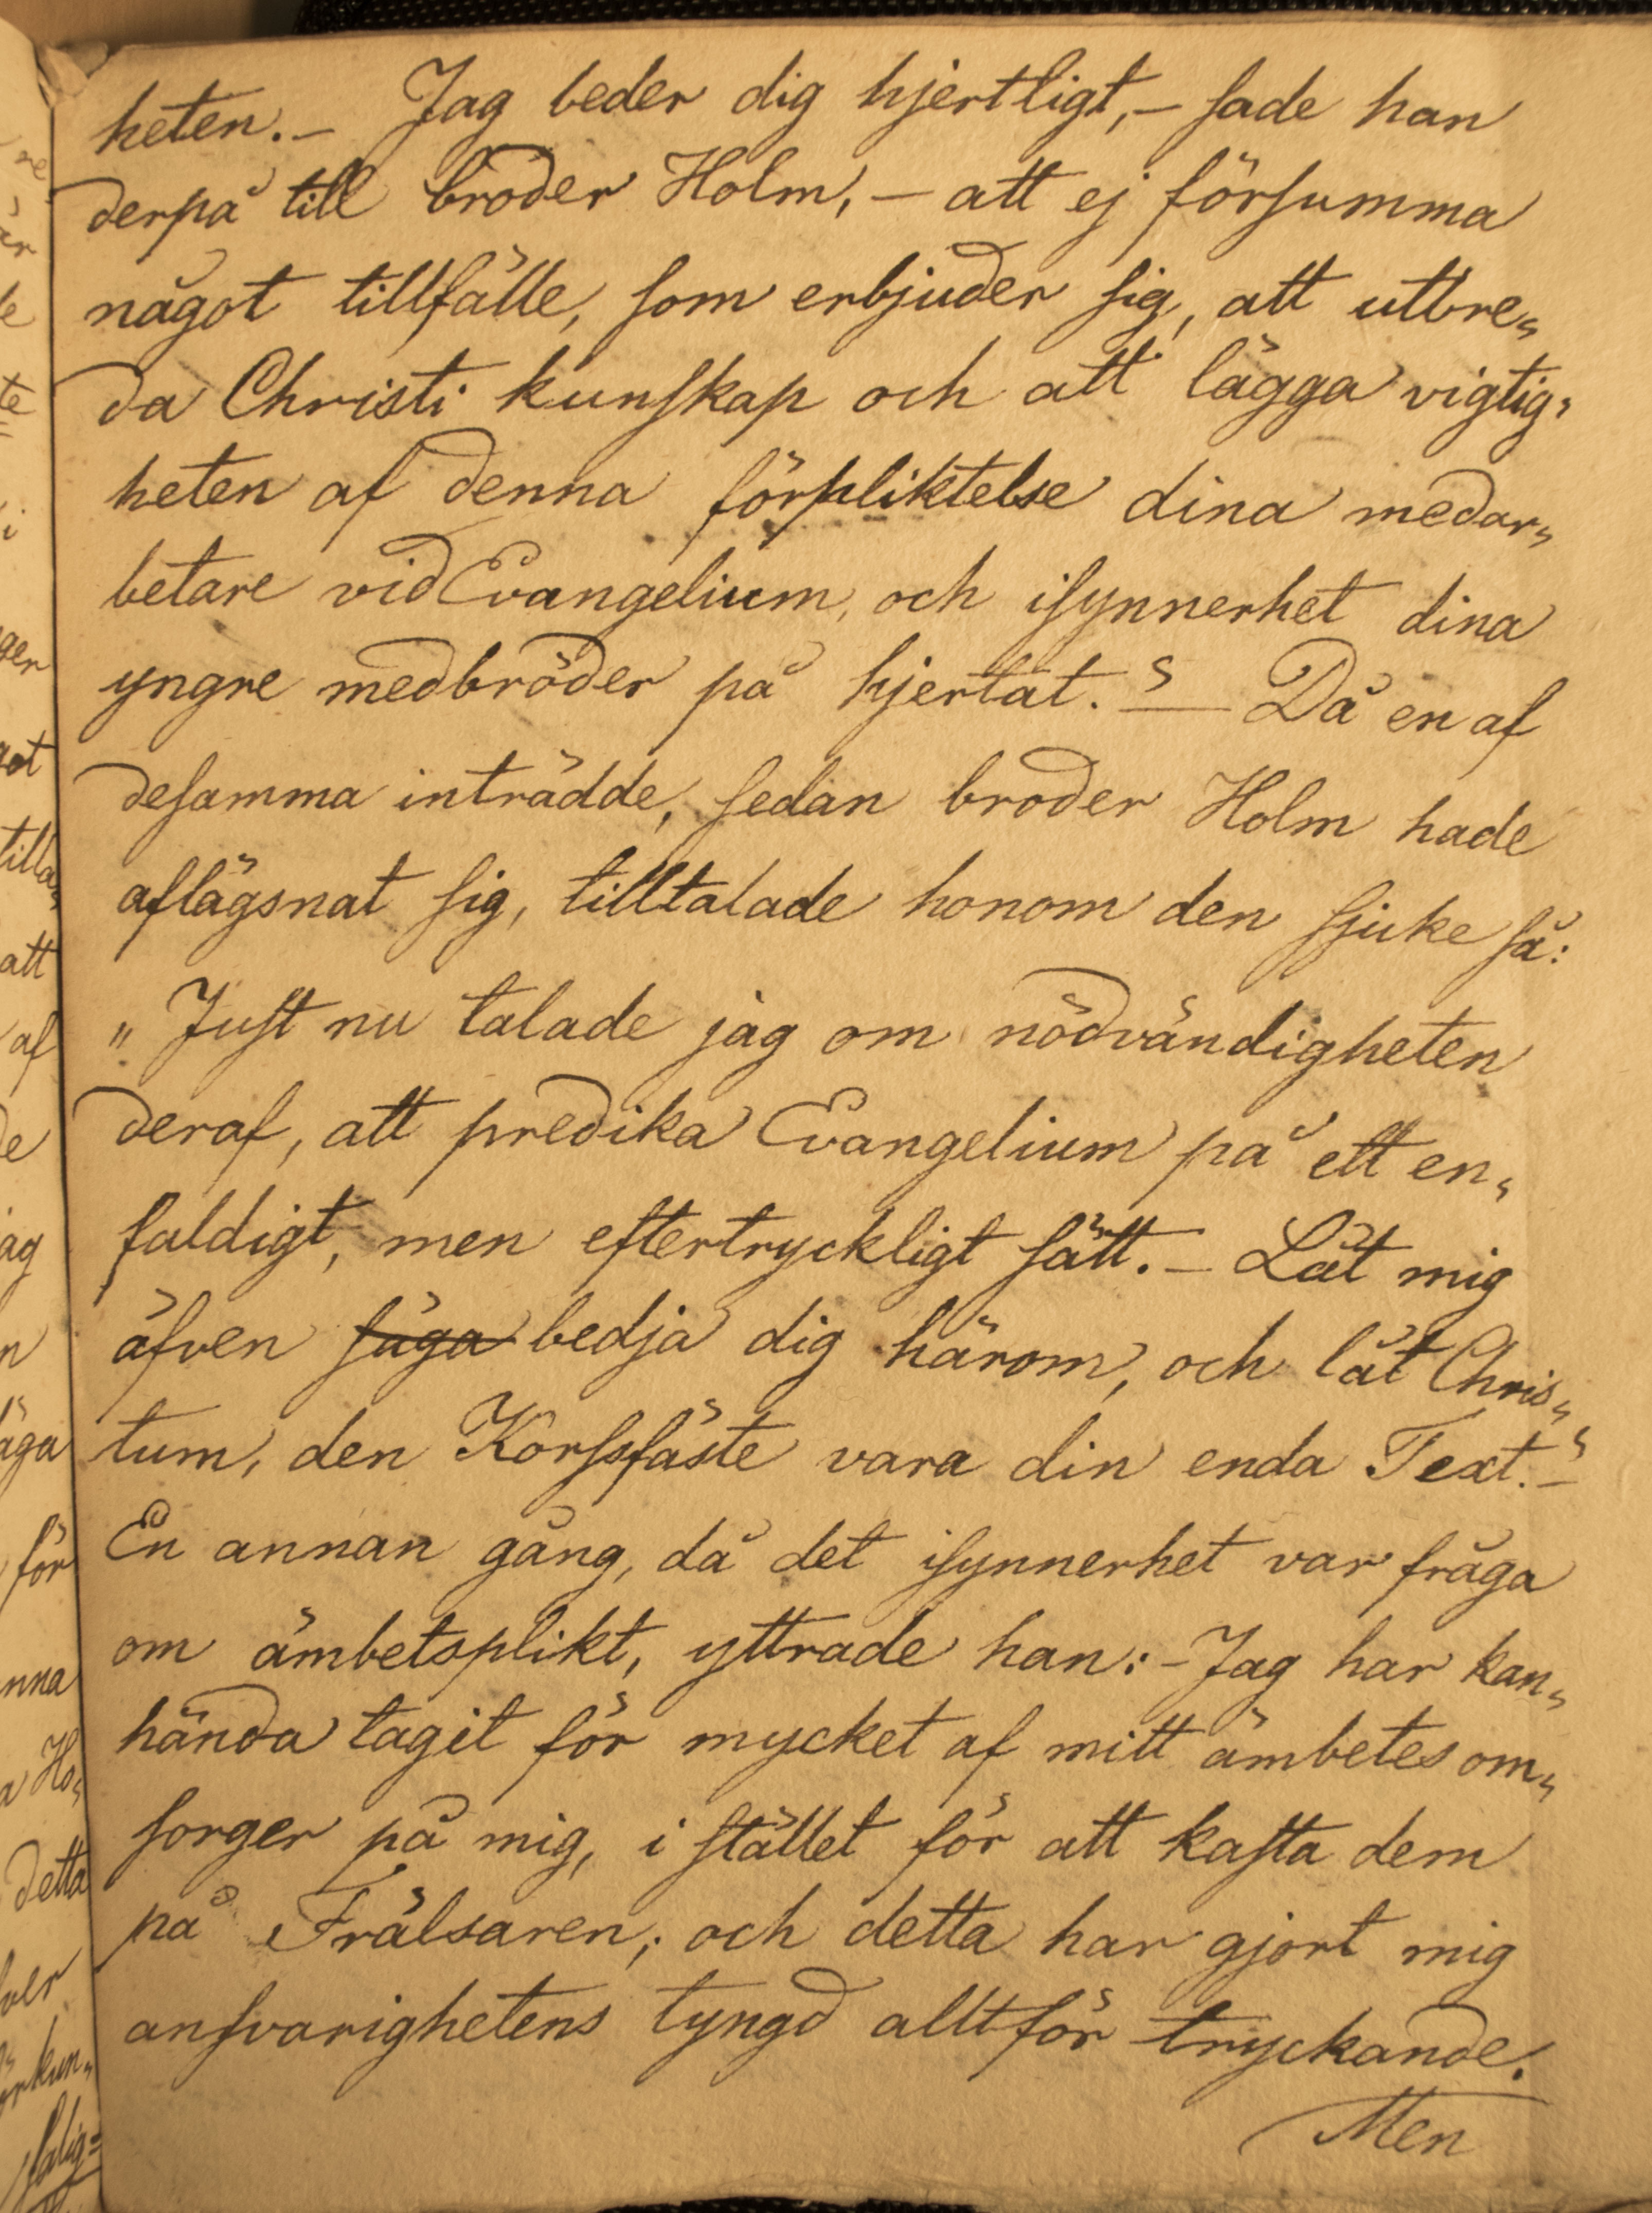 heten. – Jag beder dig hjertligt, – sade han
derpå till broder Holm, – att ej försumma
något tillfälle, som erbjuder sig, att utbre„
da Christi kunskap och att lägga vigtig„
heten af denna förpliktelse dina medar„
betare vid Evangelium, och isynnerhet dina
yngre medbröder på hjertat." – Då en af
desamma inträdde, sedan broder Holm hade
aflägsnat sig, tilltalade honom den sjuke så:
„Just nu talade jag om nödvändigheten
deraf, att predika Evangelium på ett en„
faldigt, men eftertryckligt sätt. – Låt mig
äfven säga bedja dig härom, och låt Chris„
tum, den Korssfäste vara din enda Text." –
En annan gång, då det isynnerhet var fråga
om ämbetsplikt, yttrade han: – Jag har kan„
hända tagit för mycket af mitt ämbetes om„
sorger på mig, i stället för att kasta dem
på Frälsaren; och detta har gjort mig
ansvarighetens tyngd alltför tryckande.
Men